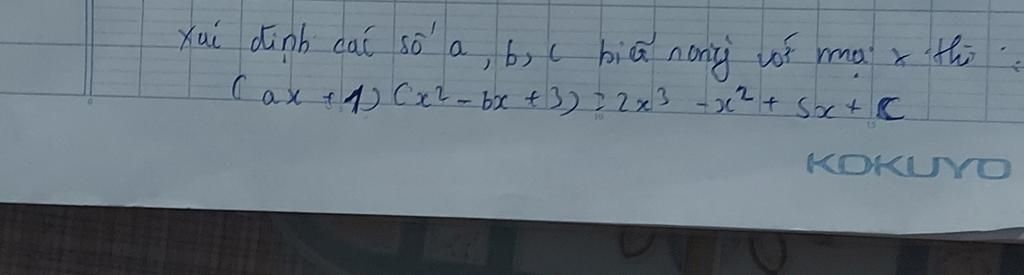 xác định các số a, b, c biết rằng với mọi x thì :
( ax + 1) (x² - bx + 3) = 2x³ - x² + 5x + C
KOKUYO